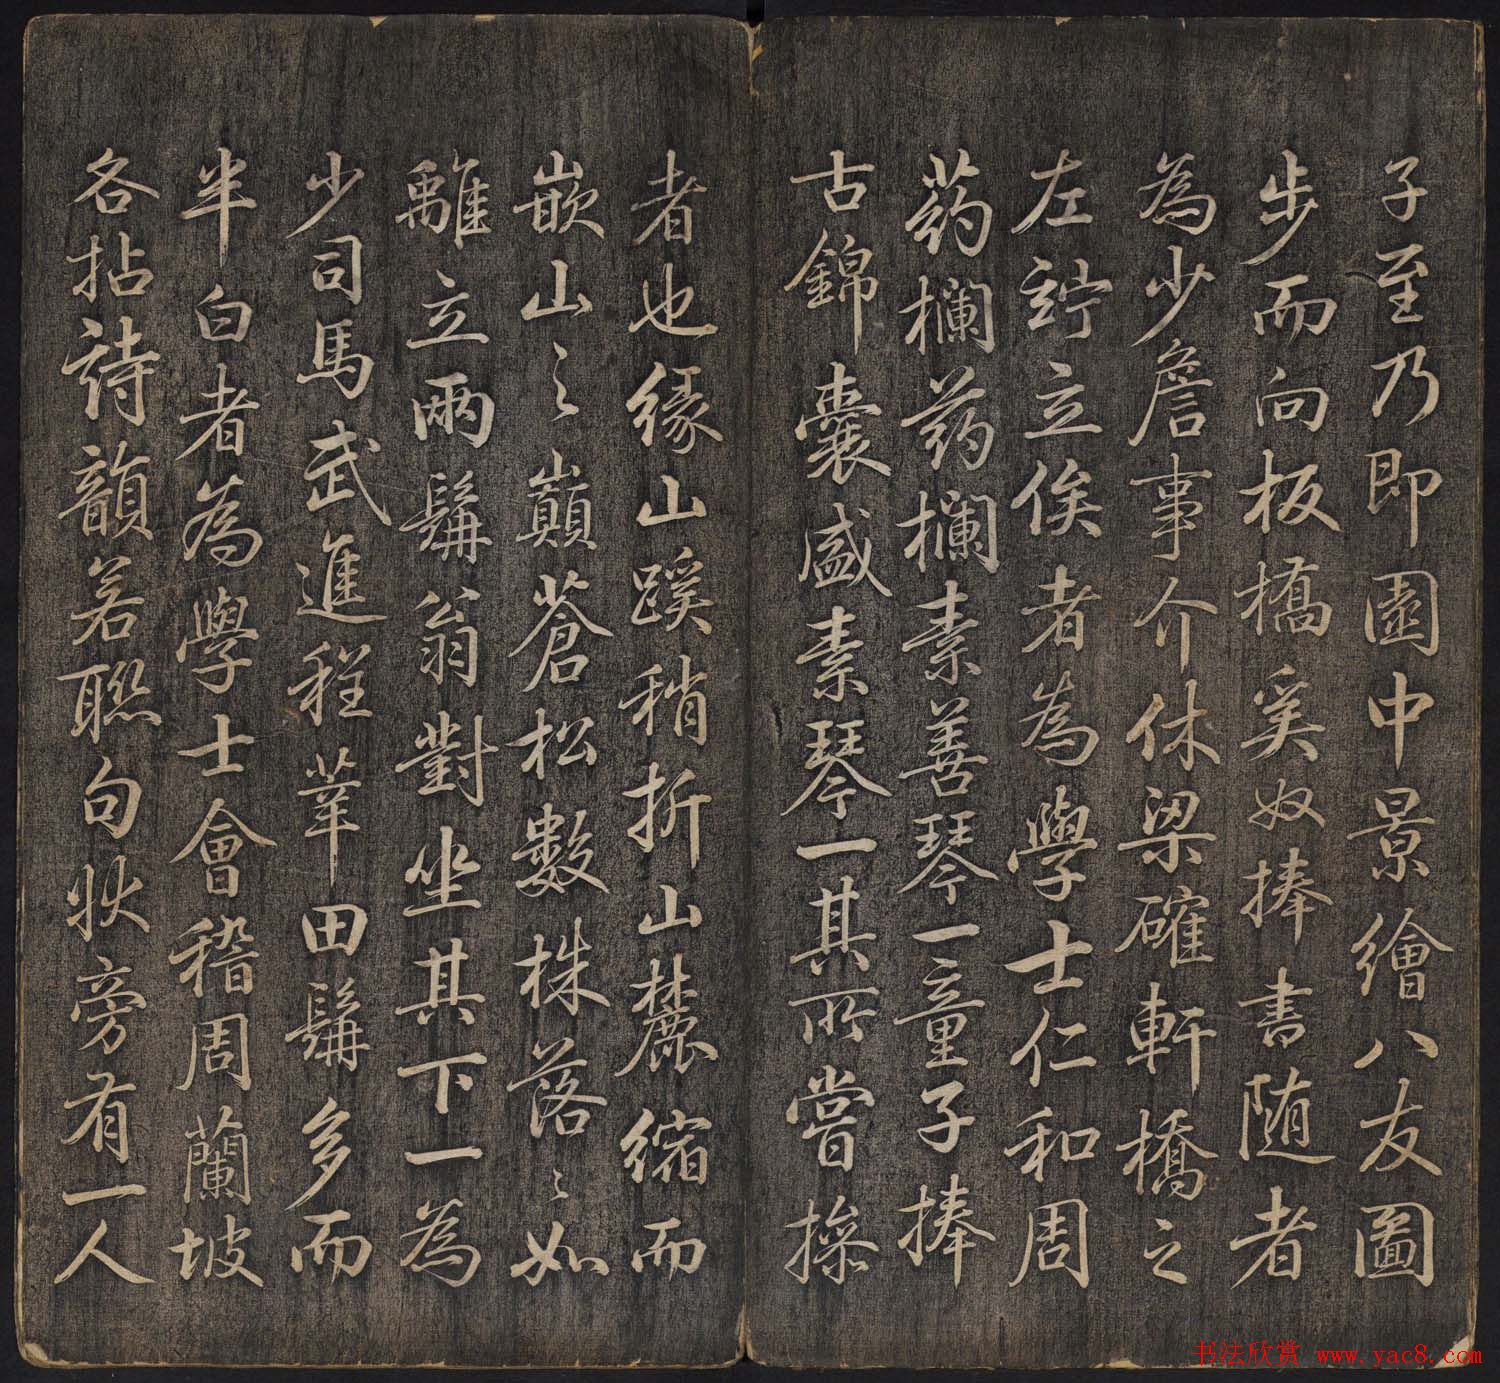 子至乃即園中景繪八友圖
步而向板橋奚奴捧書随者
為少詹事介休梁確軒橋之
左竚立俟者為學士仁和周
药欄药欄素善琴一童子捧
古錦囊盛素琴一其所嘗操
者也緣山蹊稍折山麓縮而
嵌山之巔蒼松數株落〻如
離立兩鬅翁對坐其下一為
少司馬武進程莘田鬅多而
半白者為學士會稽周蘭坡
各拈詩韻若聯句狀旁有一人
书法欣赏 www.yac8.com